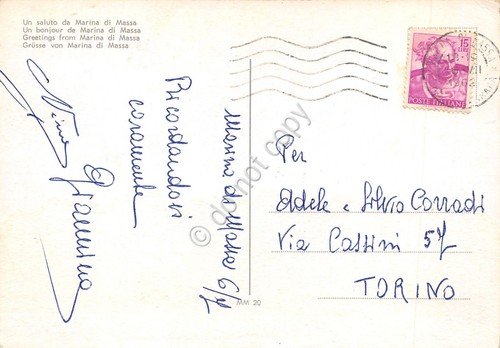 Un saluto da Marina di Massa
Un bonjour de Marina di Massa
Greetings from Marina di Massa
Grüsse von Marina di Massa
Marina di Massa 6/7
Ricordandovi
caramente
Nino Giannina
MM 20
15
LIRE
POSTE ITALIANE
Per
Adele e Silvio Corradi
Via Cassini 57
TORINO
do not copy